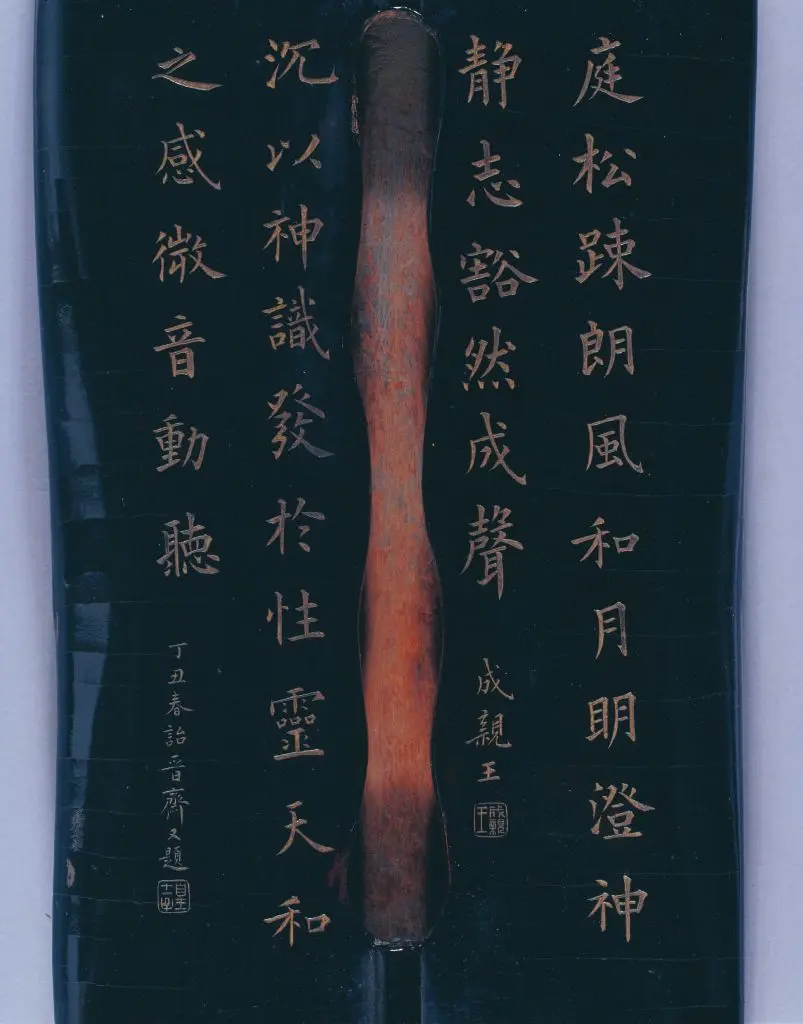 庭松踈朗風和月明澄神
静志豁然成聲
成親王
沉以神識發於性靈天和
之感微音動聽
丁丑春詒晉齋又題